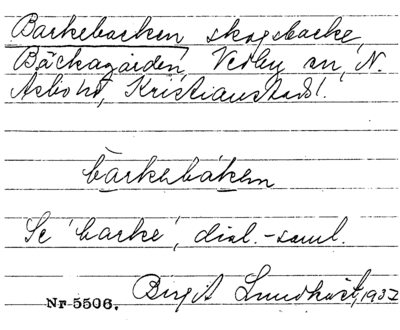 Barkebacken, skogsbacke
Bäckagården, Verby sn, N.
Asbo hd, Kristianstads l.
barkebakem
Se 'barke', dial.-saml.
Nr 5506. Birgit Lundkvist, 1937